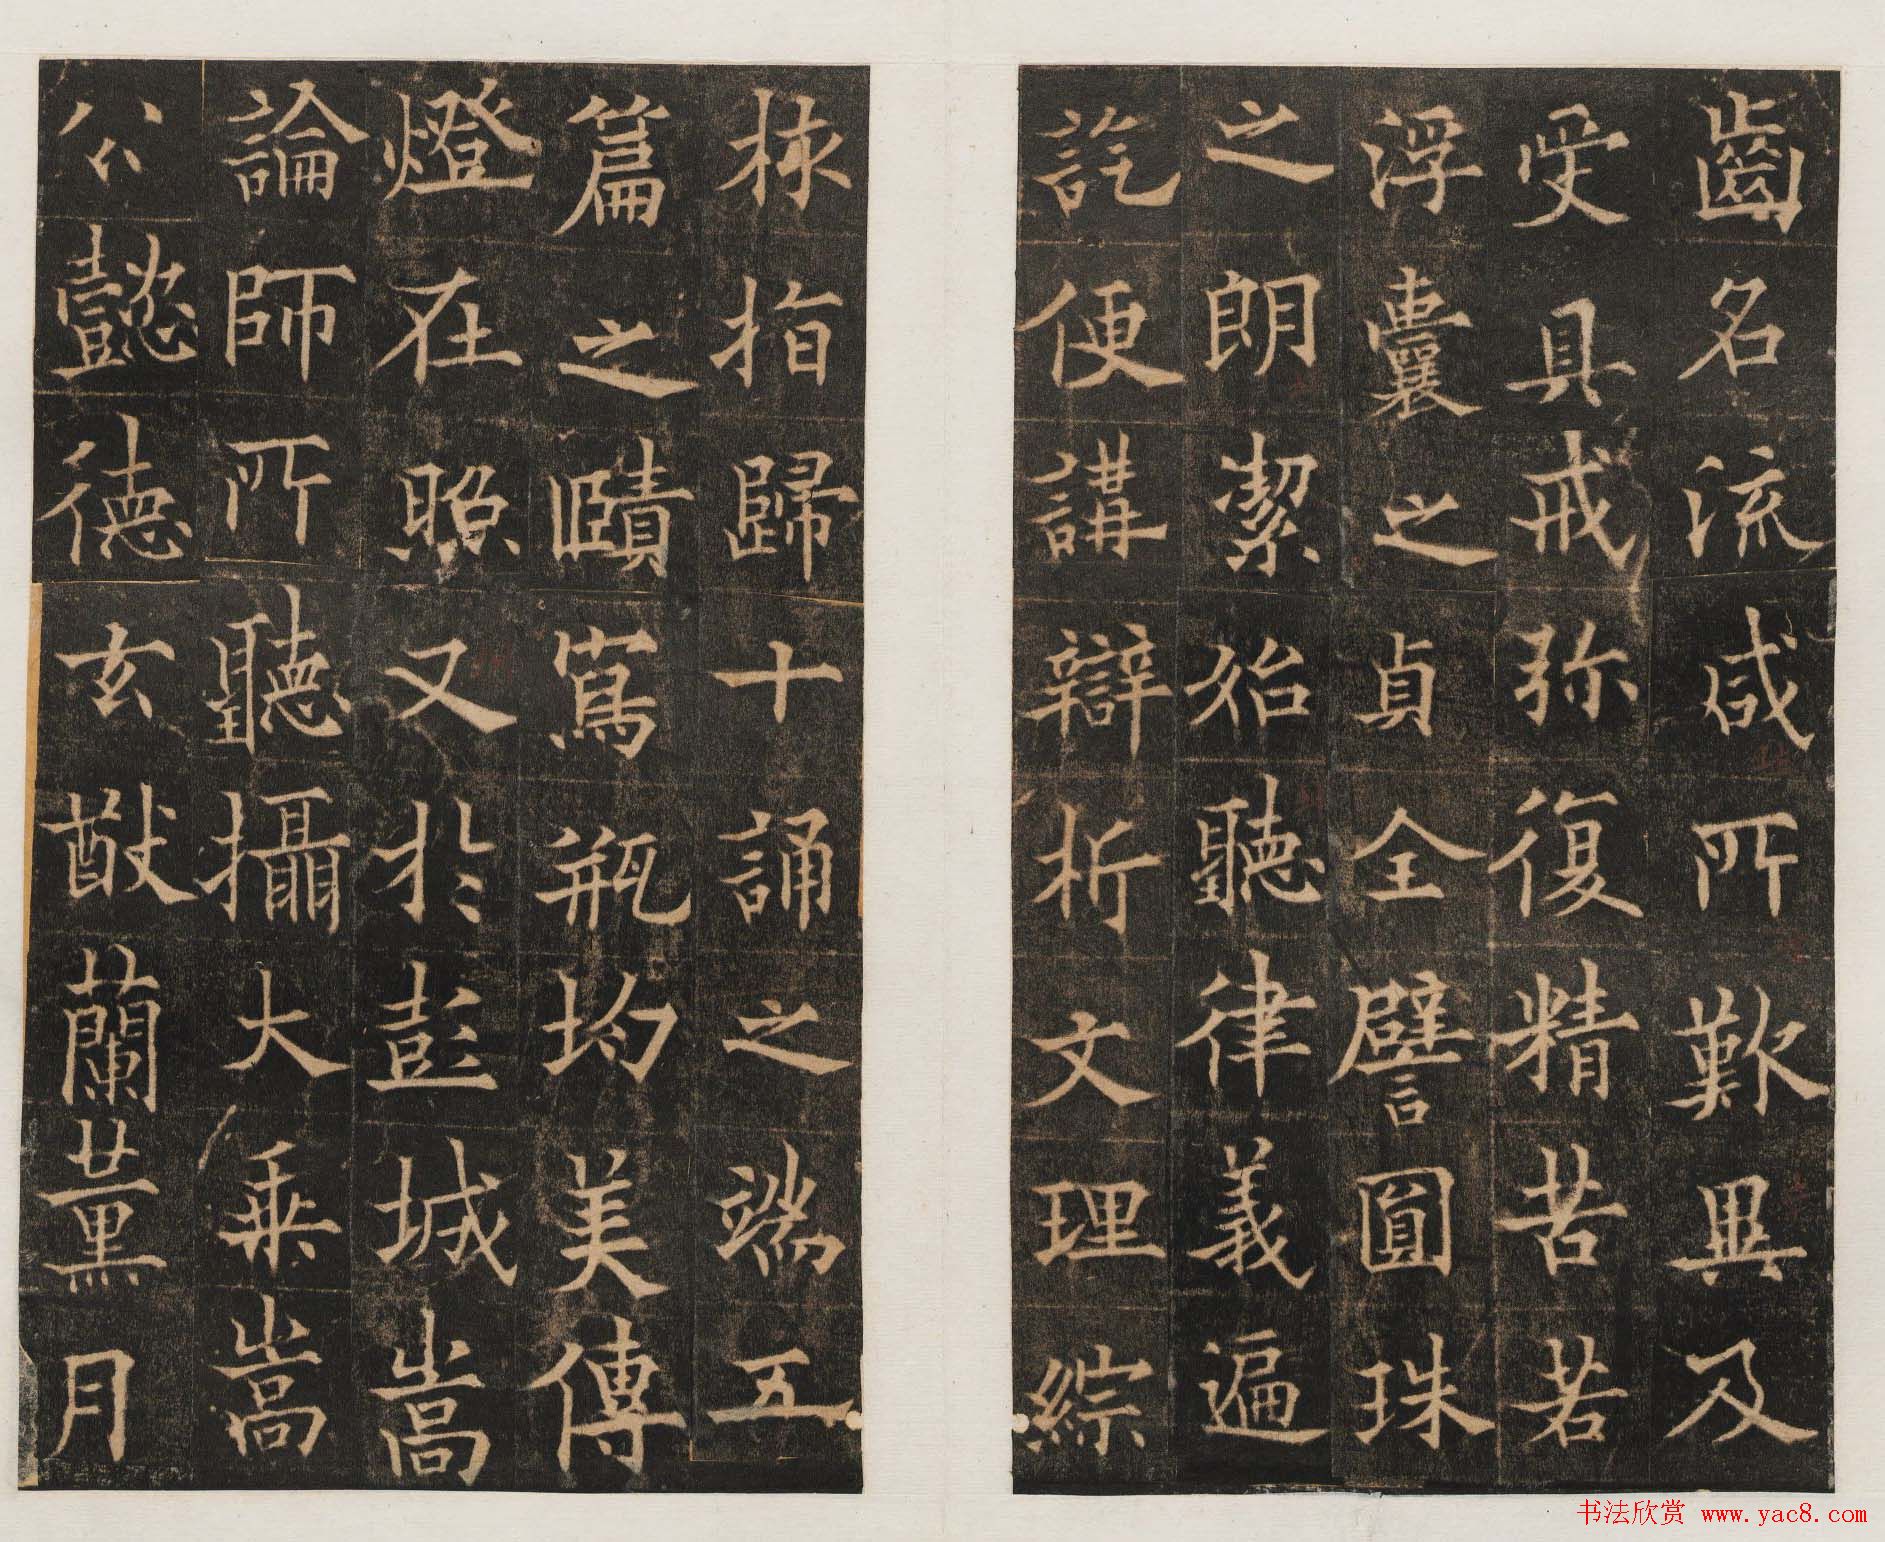 齒名流咸所歎異及
受具戒弥復精苦若
浮囊之貞全譬圓珠
之朗潔始聽律義遍
訖便講辯析文理綜
括指歸十誦之端五
篇之賾寫瓶均美傳
燈在照又於彭城嵩
論師所聽攝大乘嵩
公懿德玄猷蘭薰月
书法欣赏 www.yac8.com